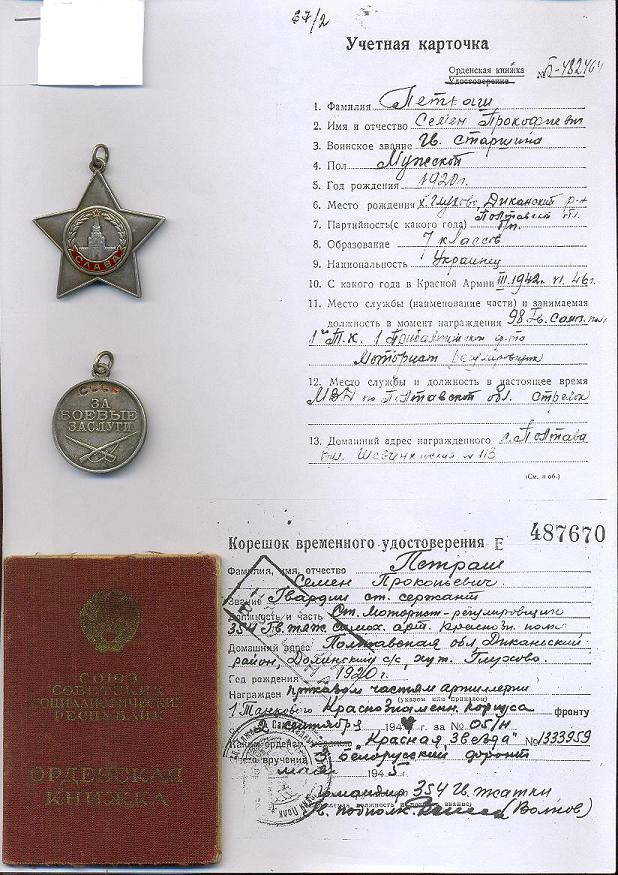 67/2
Учетная карточка
Орденская книжка
Удостоверение
№ П-482464
1. Фамилия Петраш
2. Имя и отчество Семен Прокофиевич
3. Воинское звание Гв. старшина
4. Пол Мужской
5. Год рождения 1920 г.
6. Место рождения х. Глухово, Диканский р-н
Полтавск
7. Партийность(с какого года) б/п.
8. Образование 7 классов
9. Национальность Украинец
10. С какого года в Красной Армии III.1942 г. 46 г.
11. Место службы (наименование части) и занимаемая
должность в момент награждения 98 Гв.
1й Т.К. 1 Прибалтийского ф-та
Моторист регулировщик
12. Место службы и должность в настоящее время
по Полтавской обл. Стрелок
13. Домашний адрес награжденного г. Полтава
ул. Шевченковская № 113
(См. н об.)
СЛАВА
СССР
ЗА
БОЕВЫЕ
ЗАСЛУГИ
СОЮЗ
СОВЕТСКИХ
СОЦИАЛИСТИЧЕСКИХ
РЕСПУБЛИК
ОРДЕНСКАЯ
КНИЖКА
Корешок временного удостоверения Е 487670
Фамилия, имя, отчество Петраш
Семен Прокопьевич.
Звание Гвардии ст. сержант
Должность и часть Ст. Моторист-регулировщик
354 Гв. тяж. самох. арт. Краснозн. полк
Домашний адрес Полтавская обл Диканьский
район, Долинский с/с хут. Глухово.
Год рождения 1920 г.
Награжден приказом частям артиллерии
(указом или приказом)
1 Танкового Краснознаменн. Корпуса фронту
2 сентября 1944 г. за № 051/н
Каким орденом, медалью "Красная Звезда" № 1333959
Место вручения белорусский фронт
мая 1945
Командир 354 Гв.
Гв. подполк. (Волков)